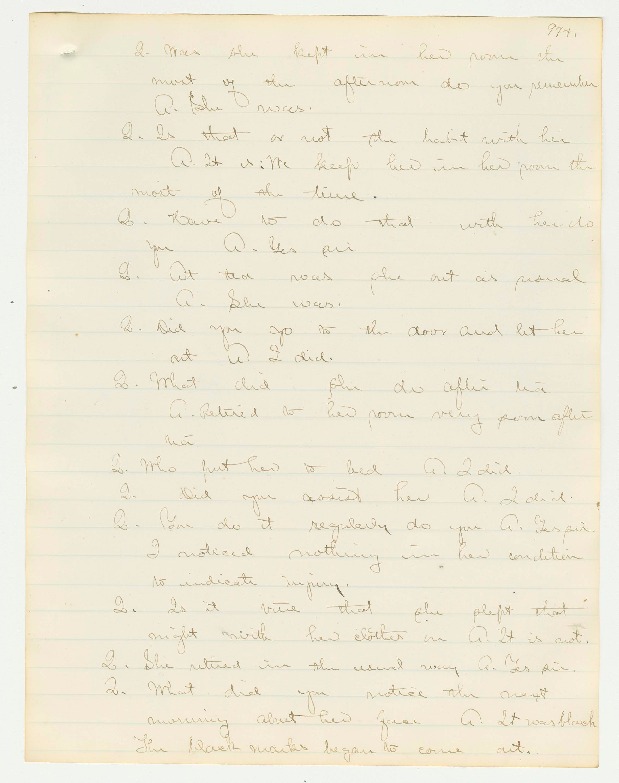 974.
Q. Was she kept in her room the
most of the afternoon do you remember
A. She was.
Q. Is that or not the habit with her
A. It is. We keep her in her room the
most of the time.
Q. Have to do that with her do
you A. Yes sir
Q. At tea was she out as usual
A. She was.
Q. Did you go to the door and let her
out A. I did.
Q. What did she do after tea
A. Retired to her room very soon after
tea
Q. Who put her to bed A. I did.
Q. Did you assist her A. I did.
Q. You do it regularly do you A. Yes sir.
I noticed nothing in her condition
to indicate injury.
Q. Is it true that she slept that
night with her clothes on A. It is not.
Q. She retired in the usual way A. Yes sir.
Q. What did you notice the next
morning about her face A. It was black
The black marks began to come out.